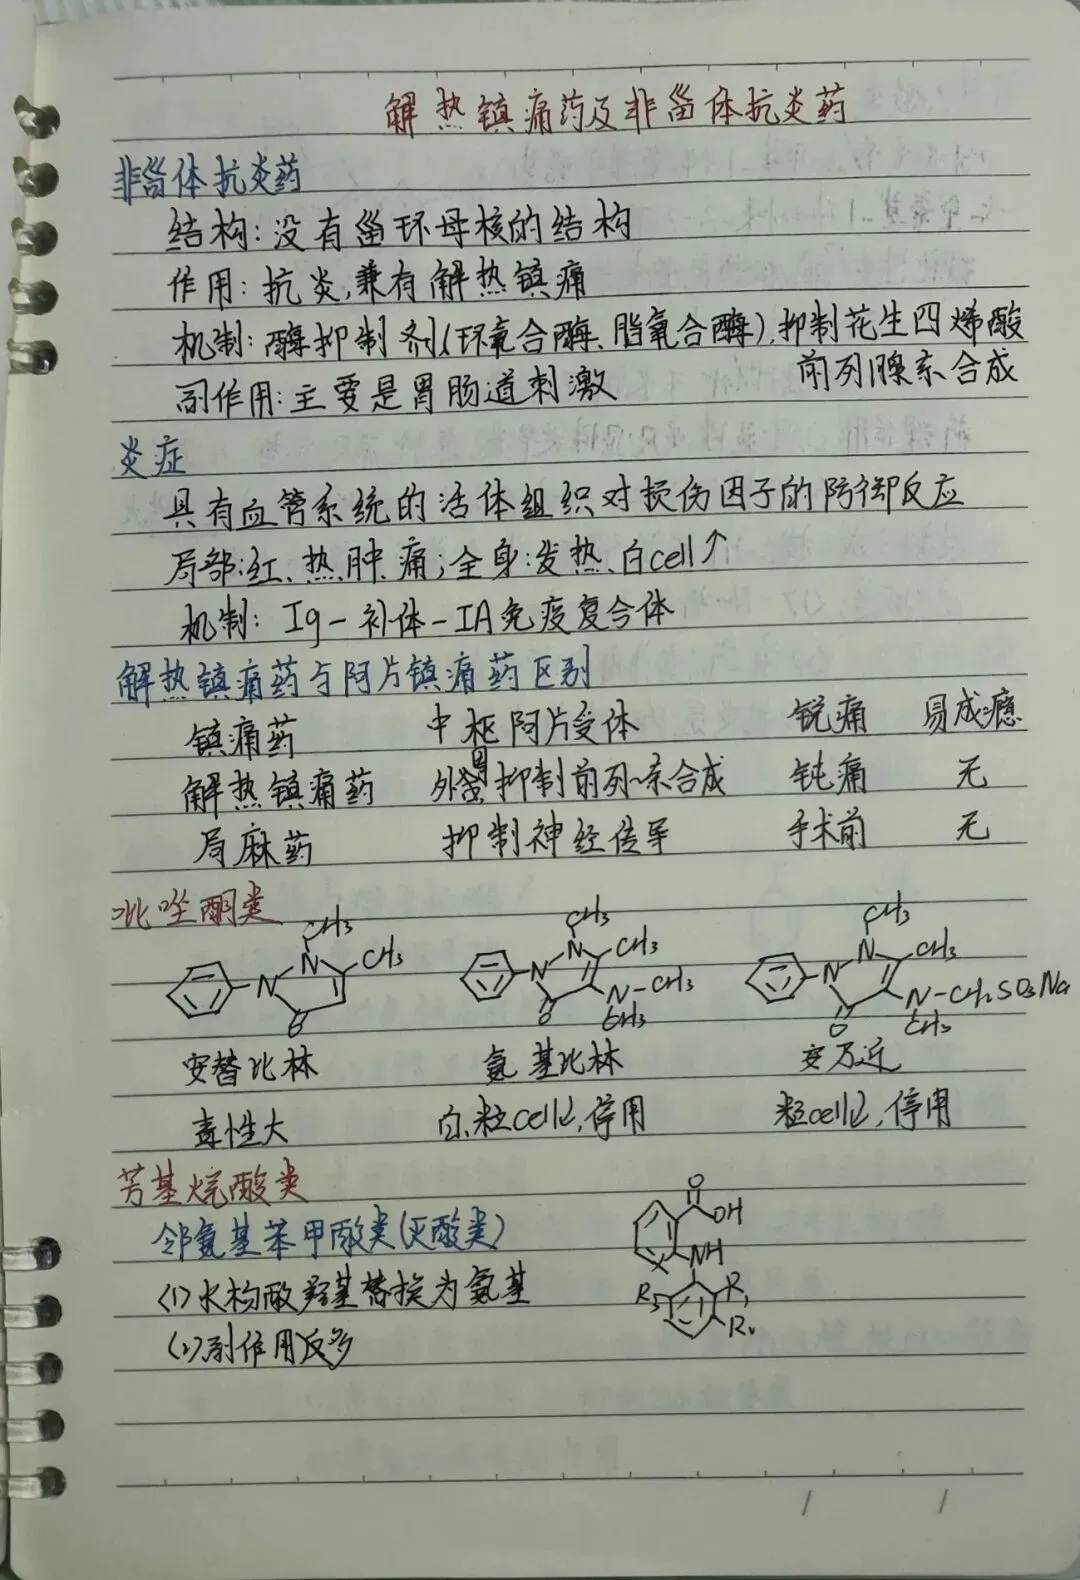 解热镇痛药及非甾体抗炎药
非甾体抗炎药
结构:没有甾环母核的结构
作用:抗炎,兼有解热镇痛
机制:酶抑制剂(环氧合酶、脂氧合酶),抑制花生四烯酸
前列腺素合成
副作用:主要是胃肠道刺激
炎症
具有血管系统的活体组织对损伤因子的防御反应
局部:红、热、肿、痛;全身:发热、白cell↑
机制: Ig-补体-IA免疫复合体
解热镇痛药与阿片镇痛药区别
镇痛药 中枢阿片受体 锐痛 易成瘾
解热镇痛药 外周 抑制前列~素合成 钝痛 无
局麻药 抑制神经传导 手术前 无
吡唑酮类
CH3 CH3 CH3
N CH3 N CH3 N CH3
N N N-CH3 N N-CH2SO3Na
O O CH3 O CH3
安替比林 氨基比林 安乃近
毒性大 白、粒cell↓,停用 粒cell↓,停用
芳基烷酸类
O
OH
邻氨基苯甲酸类(灭酸类)
NH
(1)水杨酸羟基替换为氨基
R3 R1
R2
(2)副作用反多